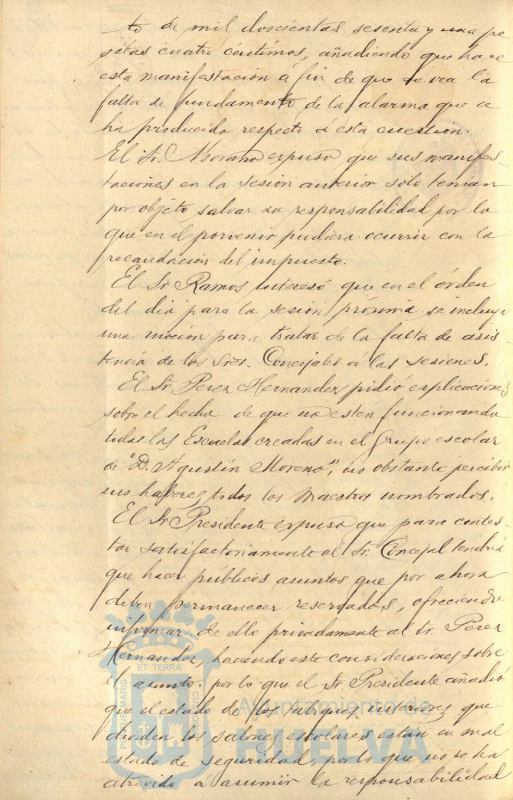 to de mil doscientas sesenta y una pe
setas cuatro céntimos, añadiendo que hace
esta manifestación a fin de que se vea la
falta de fundamento de la alarma que se
ha producido respecto a esta cuestión.
El Sr. Morano expuso que sus manifes-
taciones en la sesión anterior solo tenían
por objeto salvar su responsabilidad por lo
que en el porvenir pudiera ocurrir con la
recaudación del impuesto.
El Sr. Ramos interesó que en el órden
del día para la sesión próxima se incluya
una moción para tratar de la falta de asis
tencia de los Sres. Concejales a las sesiones.
El Sr. Perez Hernandez pidió explicaciones
sobre el hecho de que no esten funcionando
todas las Escuelas creadas en el Grupo escolar
de "D. Agustín Moreno", no obstante percibir
sus haberes todos los Maestros nombrados.
El Sr. Presidente expuso que para contes-
tar satisfactoriamente al Sr. Concejal tendría
que hacer publicos asuntos que por ahora
deben permanecer reservados, ofreciendo
informar de ello privadamente al Sr. Perez
Hernandez, haciendo este consideraciones sobre
el asunto por lo que el Sr. Presidente añadió
que el estado de los tabiques interiores que
dividen los salones escolares están en mal
estado de seguridad, por lo que no se ha
atrevido a asumir la responsabilidad
PORTUS MARIS ET TERRÆ CUSTODIA
Ayuntamiento de
HUELVA